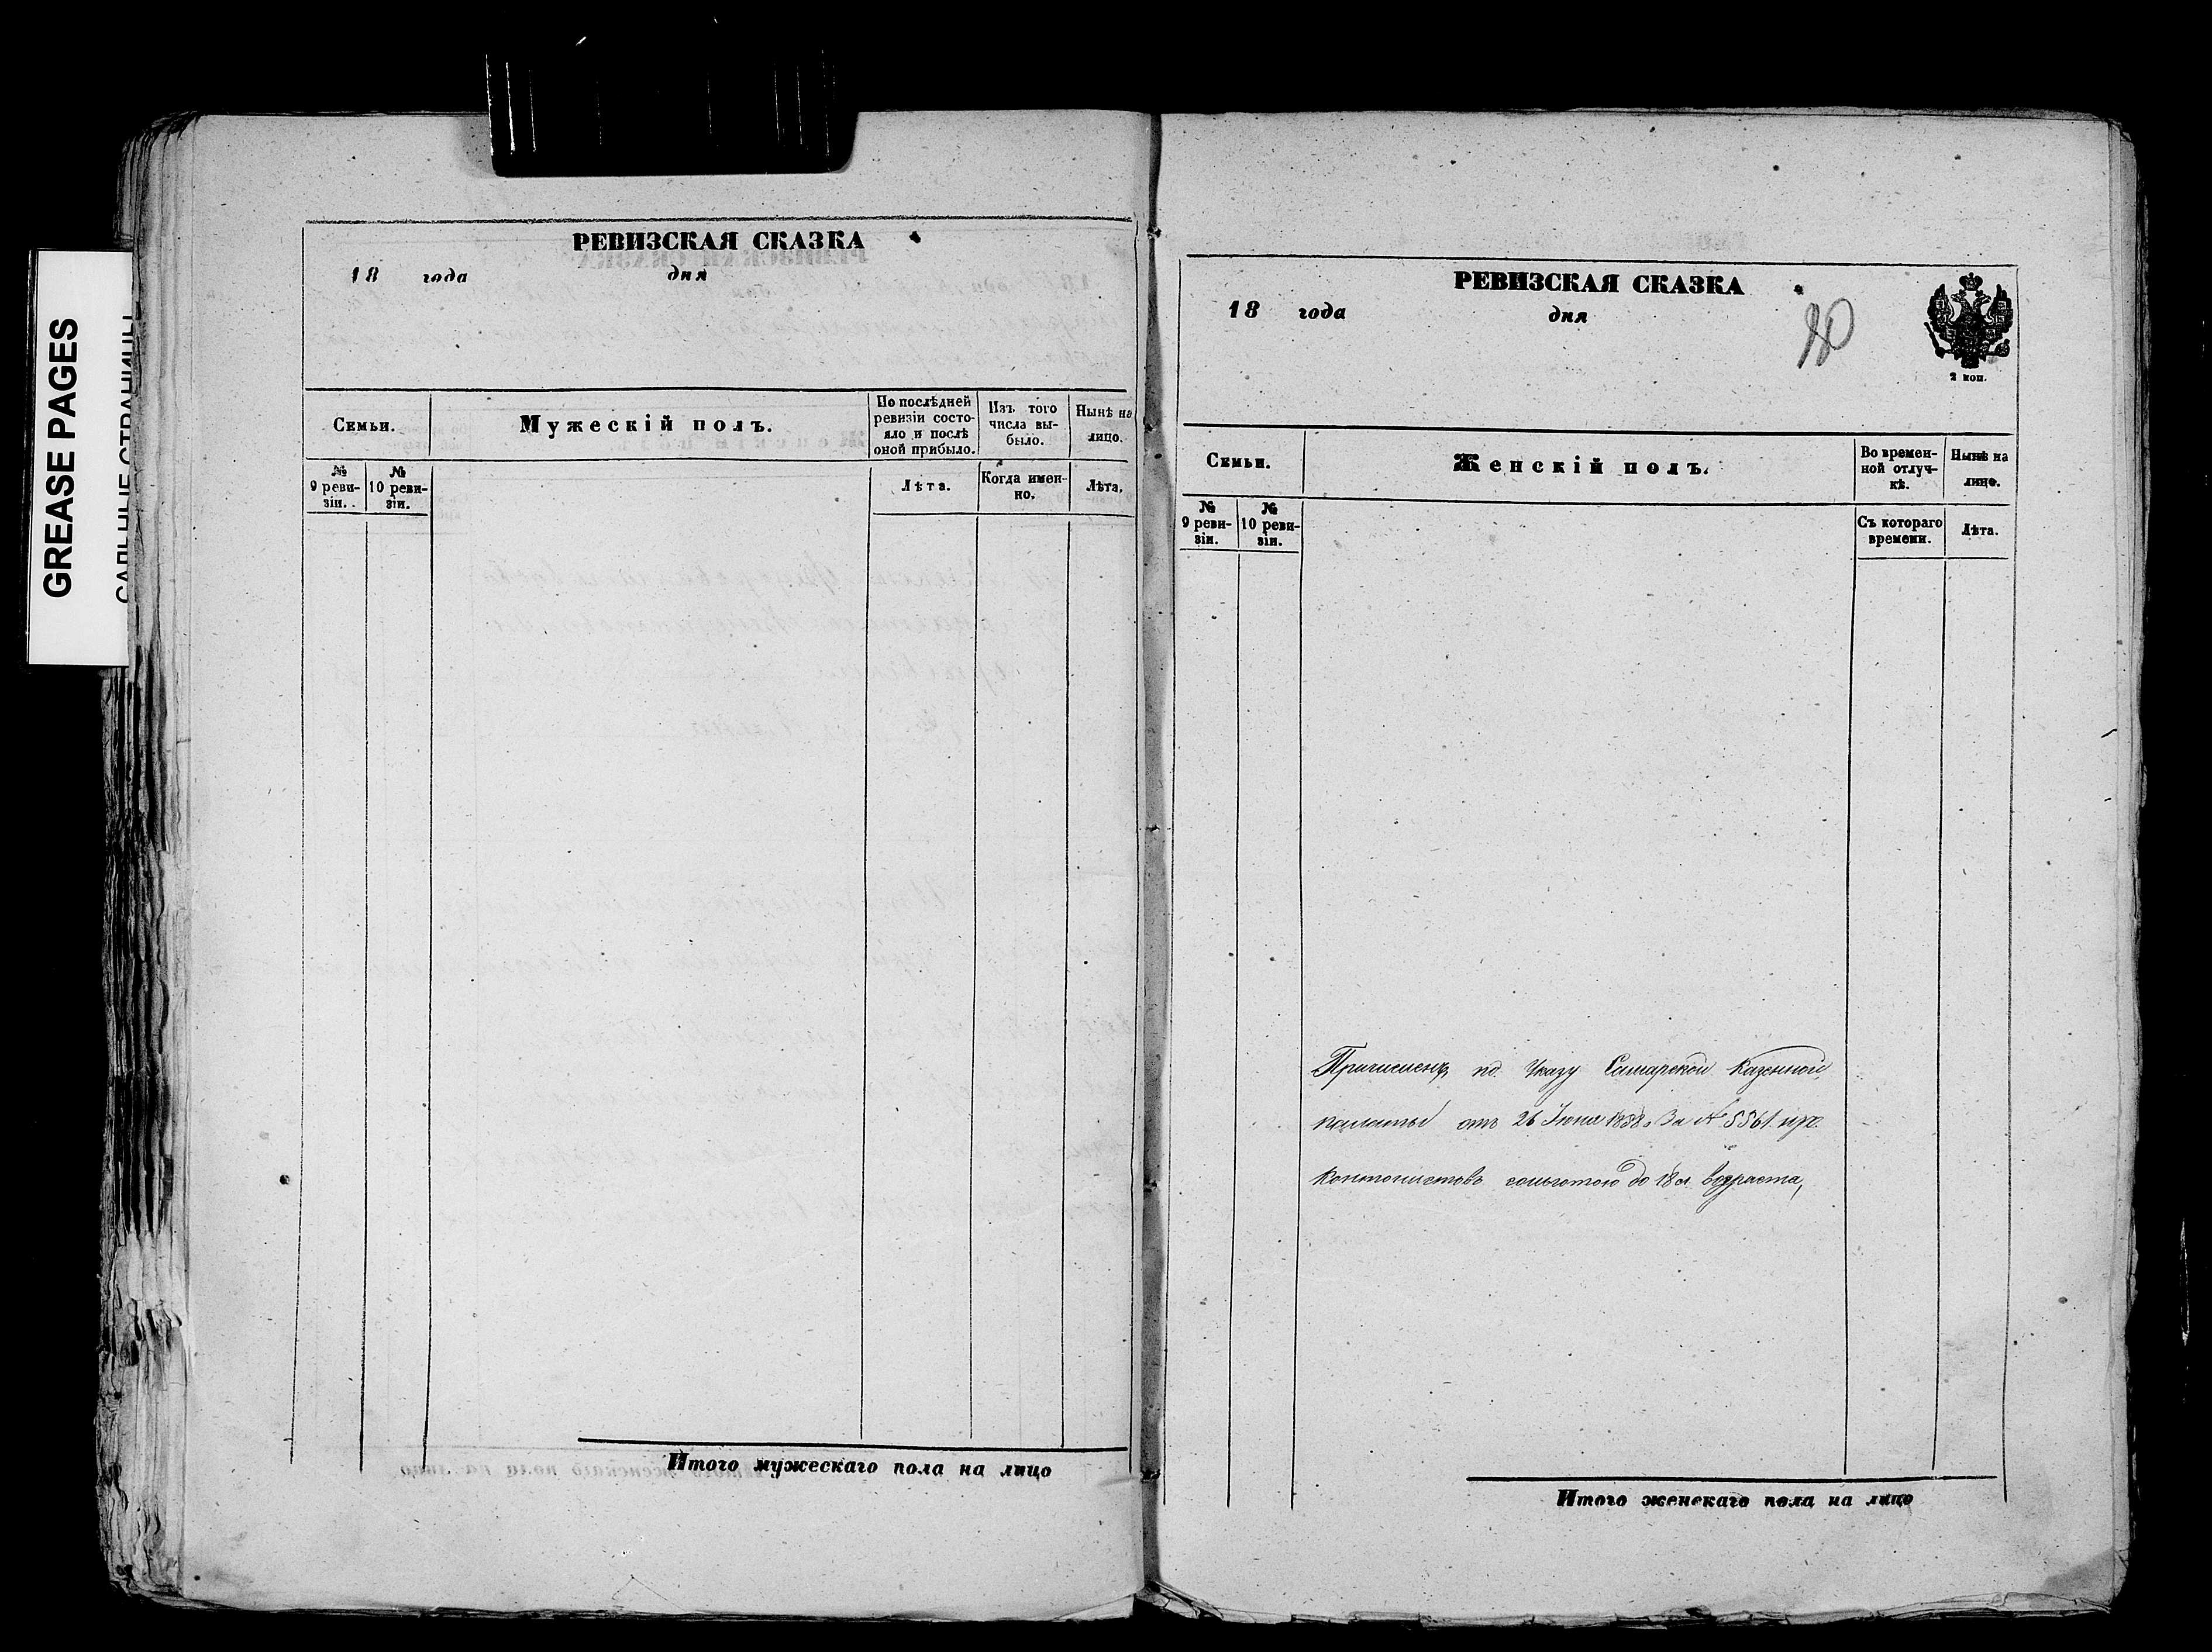 GREASE PAGES
САЛЬНЫЕ СТРАНИЦЫ
РЕВИЗСКАЯ СКАЗКА
18 года дня
Семьи.
Мужескій полъ.
По послѣдней
ревизіи состо-
яло и послѣ
оной прибыло.
Изъ того
числа вы-
было.
Нынѣ на
лицо.
№
9 реви-
зіи.
№
10 реви-
зіи.
Лѣта.
Когда имен-
но.
Лѣта.
Итого мужескаго пола на лицо
РЕВИЗСКАЯ СКАЗКА
18 года дня
2 коп.
Семьи.
Женскій полъ.
Во времен-
ной отлуч-
кѣ.
Нынѣ на
лицо.
№
9 реви-
зіи.
№
10 реви-
зіи.
Съ котораго
времени.
Лѣта.
Причисленъ по Указу Самарской Казенной
палаты отъ 26 Іюня 1858 За № 5561 изъ
Кантонистовъ съ льготою до 18 л. возраста,
Итого женскаго пола на лицо